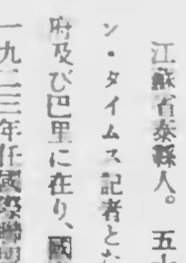 江蘇省泰縣人。 五十
ン・タイムス記者とな
府及び巴里に在り、國
一九二三年任國際聯盟